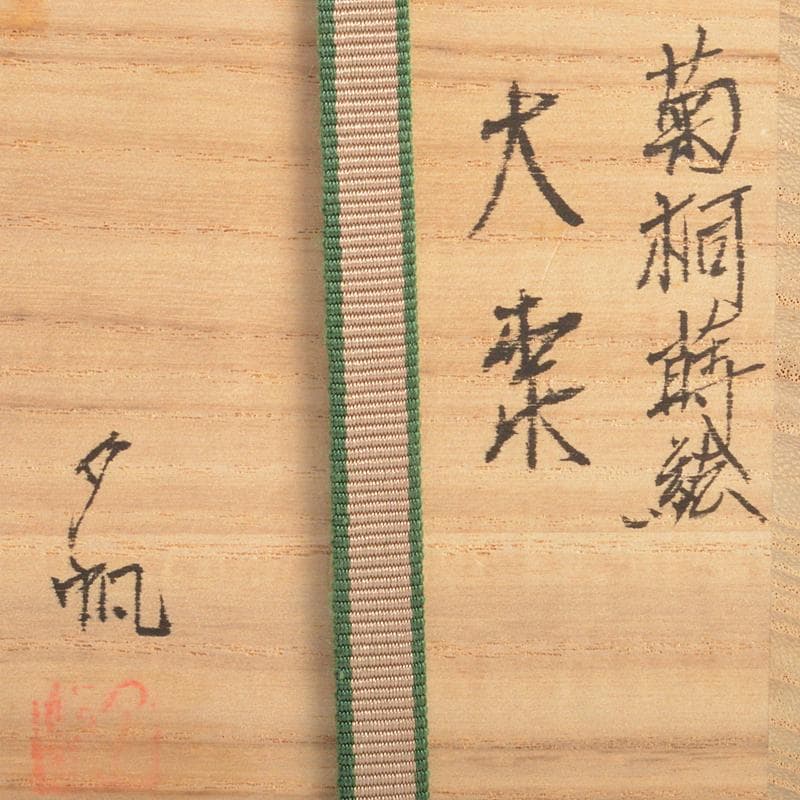 菊桐蒔絵
大棗
夕帆